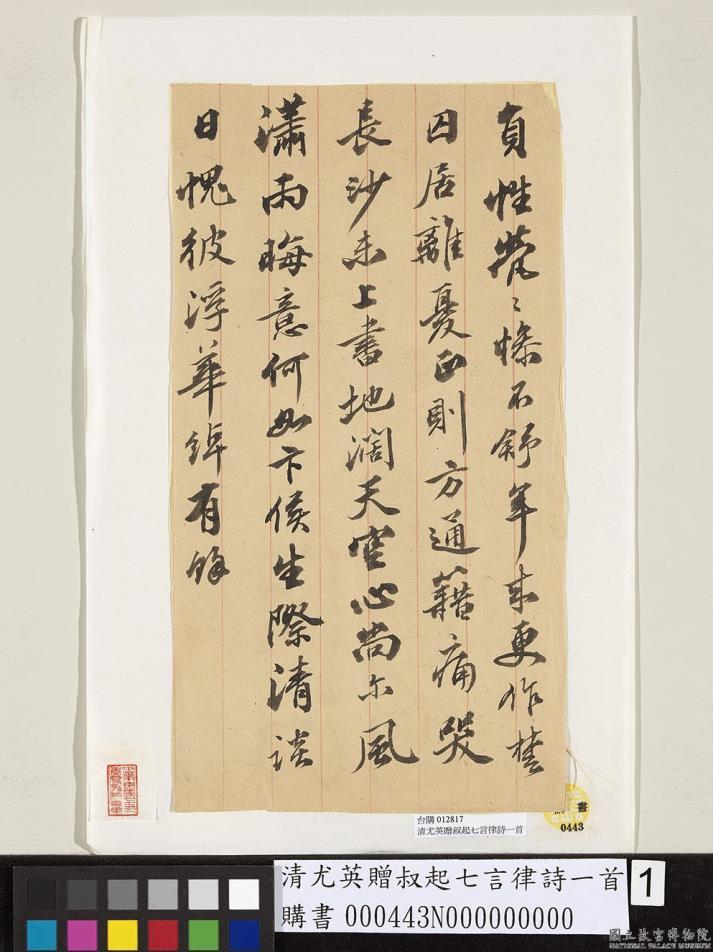 負性煢〻慘不舒年來更作楚
囚居離憂正則方通籍痛哭
長沙未上書地濶天空心尚尔風
瀟雨晦意何如卞侯生際清談
日愧彼浮華綽有餘
台購 012817
清尤英贈叔起七言律詩一首
書
0443
清尤英贈叔起七言律詩一首
購書 000443N000000000
1
國立故宮博物院
NATIONAL PALACE MUSEUM